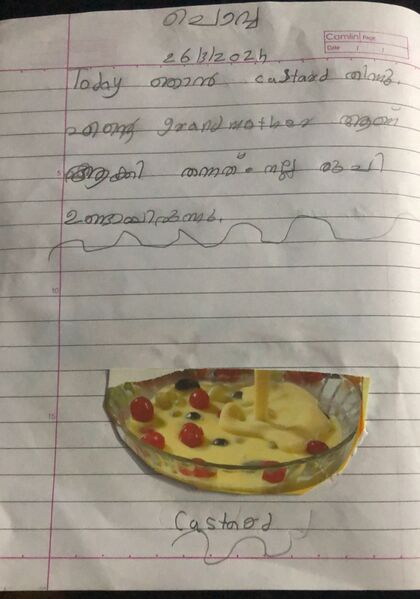 ചൊവ്വ
Camlin Page
Date / /
26/3/2024
Today ഞാൻ castard തിന്നു.
എന്റെ grandmother ആണ്
ആക്കി തന്നത്. നല്ല രുചി
ഉണ്ടായിരുന്നു.
5
10
15
Castard